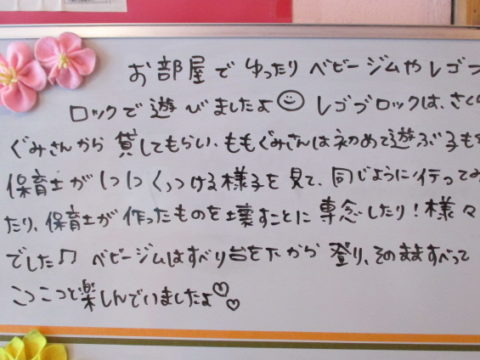 お部屋で ゆったり ベビージムやレゴブ
ロックで遊びましたよ☺ レゴブロックは、さく
ぐみさんから貸してもらい、ももぐみさんは初めて遊ぶ子も
保育士が1つ1つくっつける様子を見て、同じように行ってみ
たり、保育士が作ったものを壊すことに専念したり！様々
でした♫ ベビージムはすべり台を下から登り、そのまますべって
にっこにこと楽しんでいましたよ♡♡